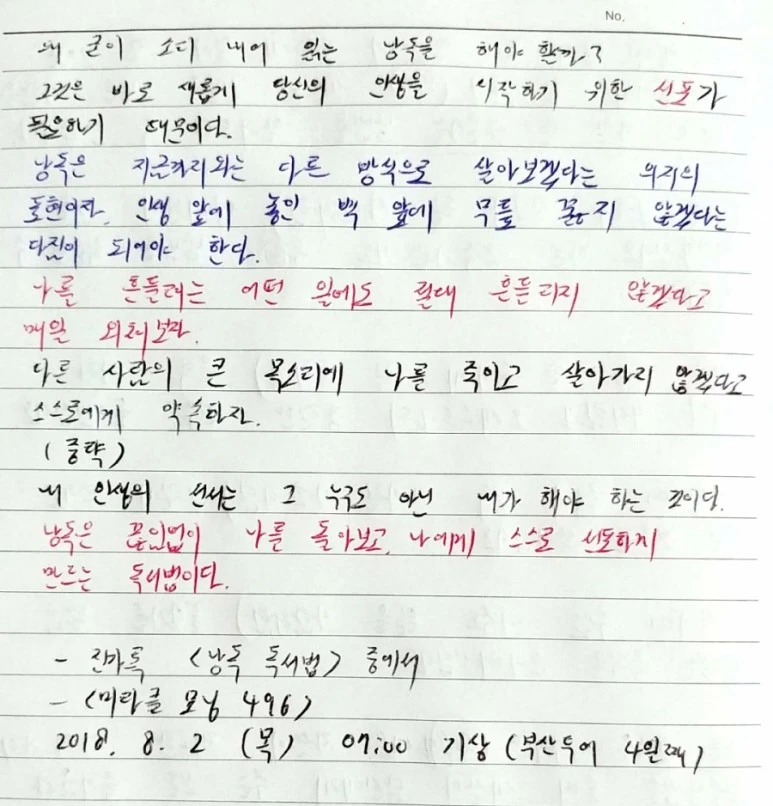 No.
왜 굳이 소리 내어 읽는 낭독을 해야 할까?
그것은 바로 새롭게 당신의 인생을 시작하기 위한 선포가
필요하기 때문이다.
낭독은 지금까지와는 다른 방식으로 살아보겠다는 의지의
표현이자, 인생 앞에 놓인 벽 앞에 무릎 꿇지 않겠다는
다짐이 되어야 한다.
나를 흔들려는 어떤 일에도 절대 흔들리지 않겠다고
매일 외쳐보자.
다른 사람의 큰 목소리에 나를 죽이고 살아가지 않겠다고
스스로에게 약속하자.
(중략)
내 인생의 선서는 그 누구도 아닌 내가 해야 하는 것이다.
낭독은 끊임없이 나를 돌아보고, 나에게 스스로 선포하게
만드는 독서법이다.
- 진가록 <낭독 독서법> 중에서
- <미라클 모닝 496>
2018. 8. 2 (목) 07:00 기상 (부산투어 4일째)